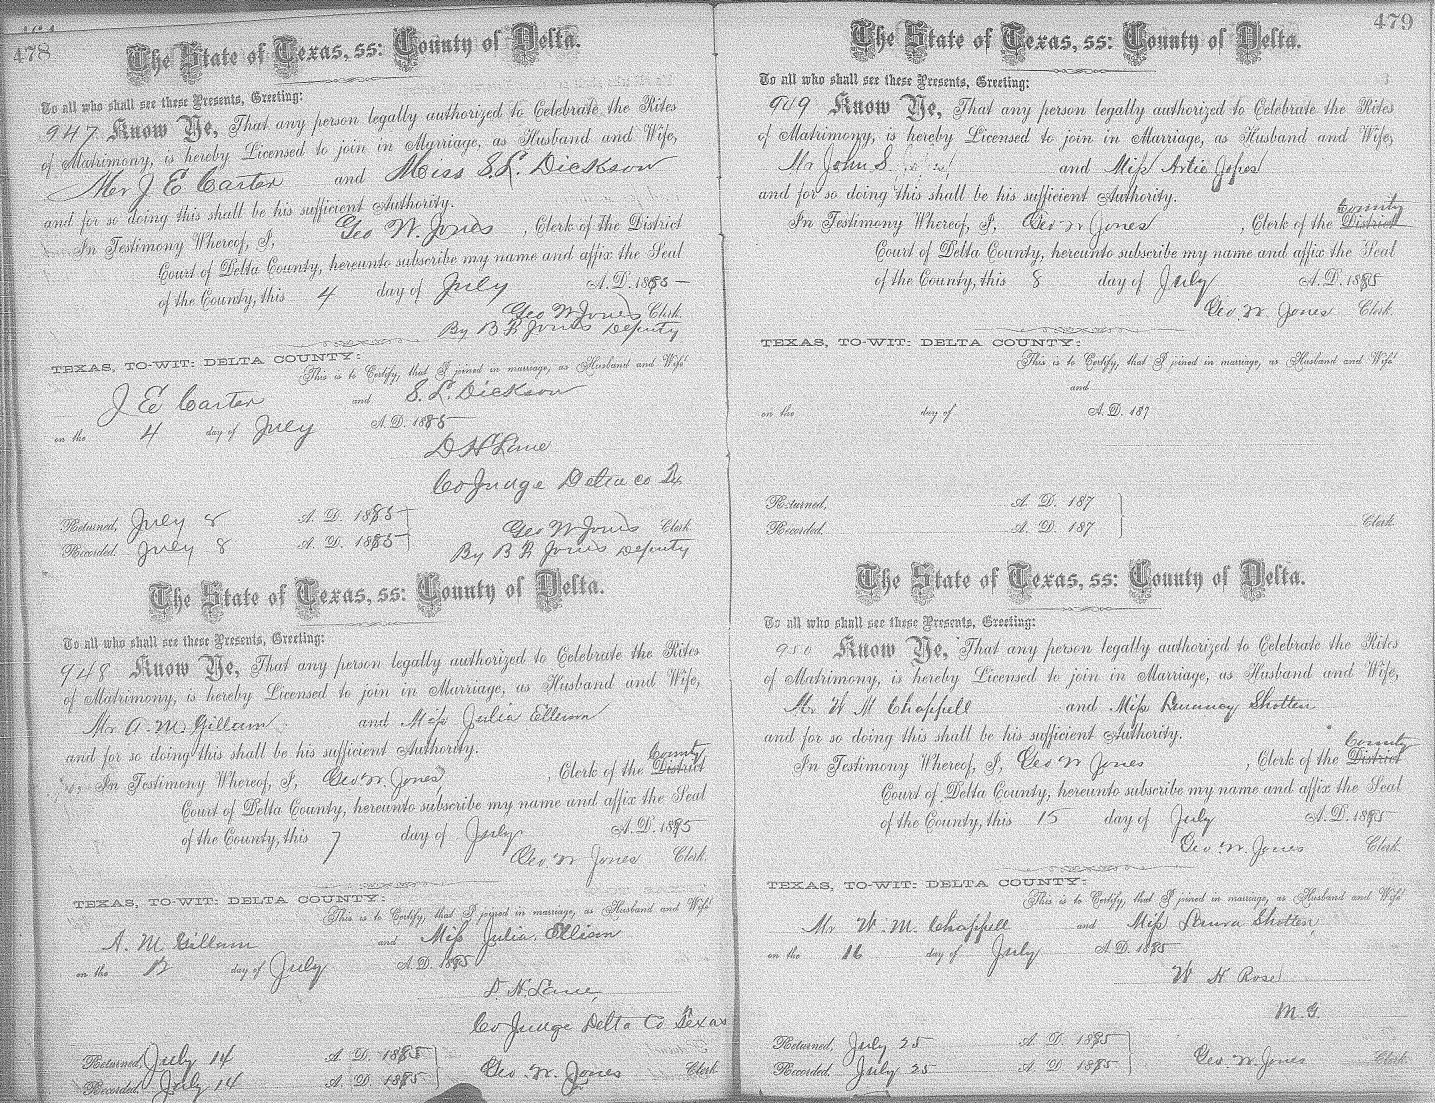 478
The State of Texas, ss: County of Delta.
To all who shall see these Presents, Greeting:
947 Know Ye, That any person legally authorized to Celebrate the Rites
of Matrimony, is hereby Licensed to join in Marriage, as Husband and Wife,
Mr J E Carter and Miss S. L. Dickson
and for so doing this shall be his sufficient Authority.
In Testimony Whereof, I, Geo W. Jones, Clerk of the District
Court of Delta County, hereunto subscribe my name and affix the Seal
of the County, this 4 day of July A. D. 1885
Geo W Jones Clerk.
By B R Jones Deputy
TEXAS, TO-WIT: DELTA COUNTY:
This is to Certify, that I joined in marriage, as Husband and Wife
J E Carter and S. L. Dickson
on the 4 day of July A. D. 1885
D H Lane
Co Judge Delta co Tx
Returned, July 8 A. D. 1885
Recorded. July 8 A. D. 1885
Geo W Jones Clerk
By B R Jones Deputy
The State of Texas, ss: County of Delta.
To all who shall see these Presents, Greeting:
948 Know Ye, That any person legally authorized to Celebrate the Rites
of Matrimony, is hereby Licensed to join in Marriage, as Husband and Wife,
Mr A. M. Gillam and Miss Julia Ellison
and for so doing this shall be his sufficient Authority.
In Testimony Whereof, I, Geo W. Jones, Clerk of the District County
Court of Delta County, hereunto subscribe my name and affix the Seal
of the County, this 7 day of July A. D. 1885
Geo W Jones Clerk.
TEXAS, TO-WIT: DELTA COUNTY:
This is to Certify, that I joined in marriage, as Husband and Wife
A. M. Gillam and Miss Julia Ellison
on the 12 day of July A. D. 1885
D. H. Lane,
Co Judge Delta Co Texas
Returned, July 14 A. D. 1885
Recorded. July 14 A. D. 1885
Geo. W. Jones Clerk
479
The State of Texas, ss: County of Delta.
To all who shall see these Presents, Greeting:
949 Know Ye, That any person legally authorized to Celebrate the Rites
of Matrimony, is hereby Licensed to join in Marriage, as Husband and Wife,
Mr John S. and Miss Artie Jones
and for so doing this shall be his sufficient Authority.
In Testimony Whereof, I, Geo W Jones, Clerk of the District County
Court of Delta County, hereunto subscribe my name and affix the Seal
of the County, this 8 day of July A. D. 1885
Geo. W. Jones Clerk.
TEXAS, TO-WIT: DELTA COUNTY:
This is to Certify, that I joined in marriage, as Husband and Wife
and
on the day of A. D. 187
Returned, A. D. 187
Recorded. A. D. 187
Clerk
The State of Texas, ss: County of Delta.
To all who shall see these Presents, Greeting:
950 Know Ye, That any person legally authorized to Celebrate the Rites
of Matrimony, is hereby Licensed to join in Marriage, as Husband and Wife,
Mr W M Chappell and Miss Shotten
and for so doing this shall be his sufficient Authority.
In Testimony Whereof, I, Geo W Jones, Clerk of the District County
Court of Delta County, hereunto subscribe my name and affix the Seal
of the County, this 15 day of July A. D. 1885
Geo W. Jones Clerk.
TEXAS, TO-WIT: DELTA COUNTY:
This is to Certify, that I joined in marriage, as Husband and Wife
Mr W. M. Chappell and Miss Laura Shotten
on the 16 day of July A. D. 1885
W H Rose
M. G.
Returned, July 25 A. D. 1885
Recorded. July 25 A. D. 1885
Geo. W. Jones Clerk